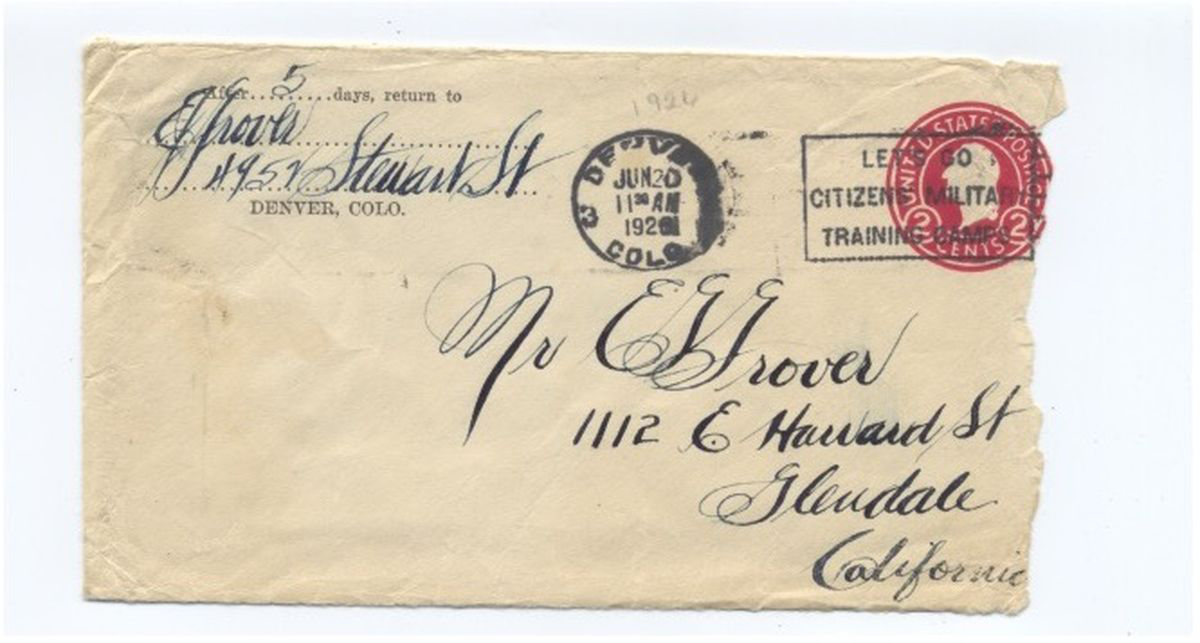 After....5....days, return to
E Grover
4957 Stewart St
DENVER, COLO.
1926
DENVER
JUN 20
11 30 AM
1926
COLO
3
LET'S GO
CITIZENS MILITARY
TRAINING CAMPS
UNITED STATES POSTAGE
2 CENTS 2
Mr E G Grover
1112 E Harvard St
Glendale
California